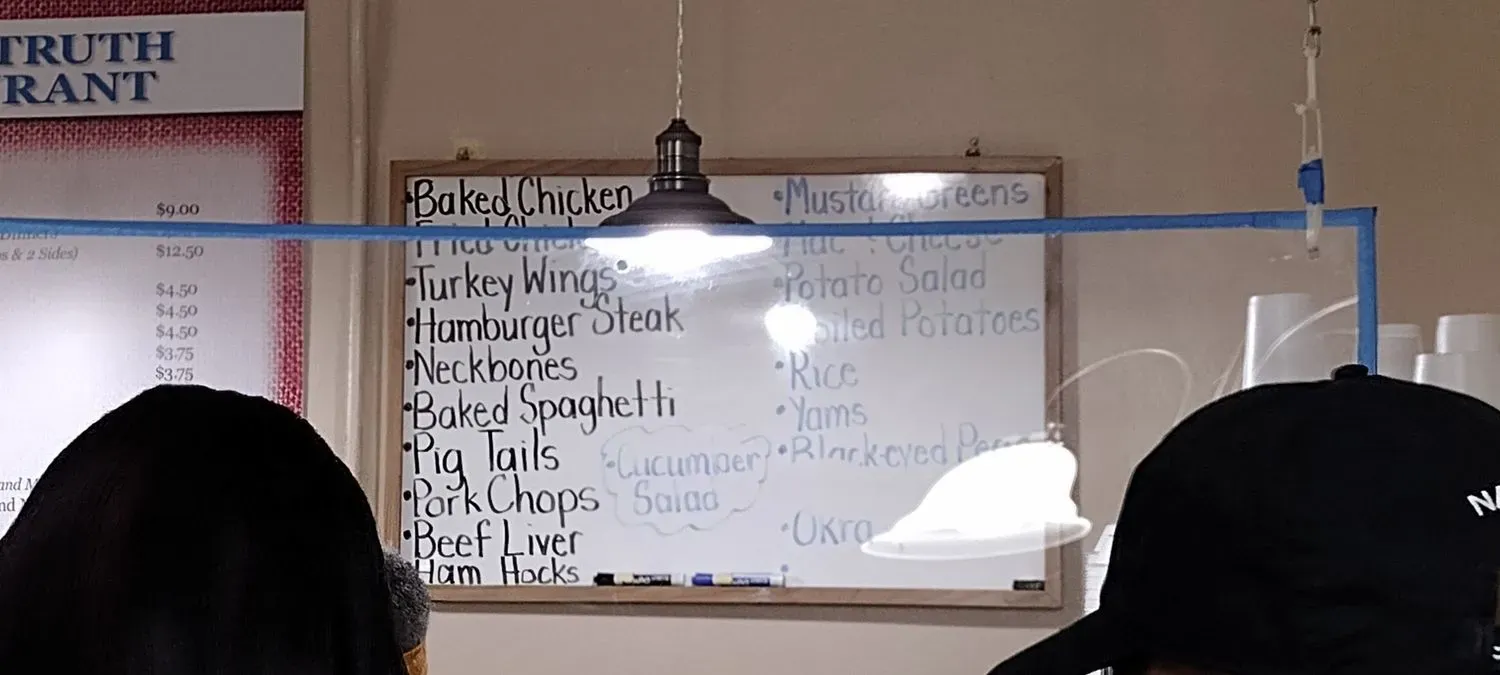 TRUTH
RANT
$9.00
s & 2 Sides)
$12.50
$4.50
$4.50
$4.50
$3.75
$3.75
and M
•Baked Chicken
Fried Chick
•Turkey Wings
•Hamburger Steak
•Neckbones
•Baked Spaghetti
•Pig Tails
•Pork Chops
•Beef Liver
Ham Hocks
•Cucumber
Salad
•Mustard Greens
Mac & Cheese
•Potato Salad
oiled Potatoes
•Rice
•Yams
•Black-eyed Peas
•Okra
NA